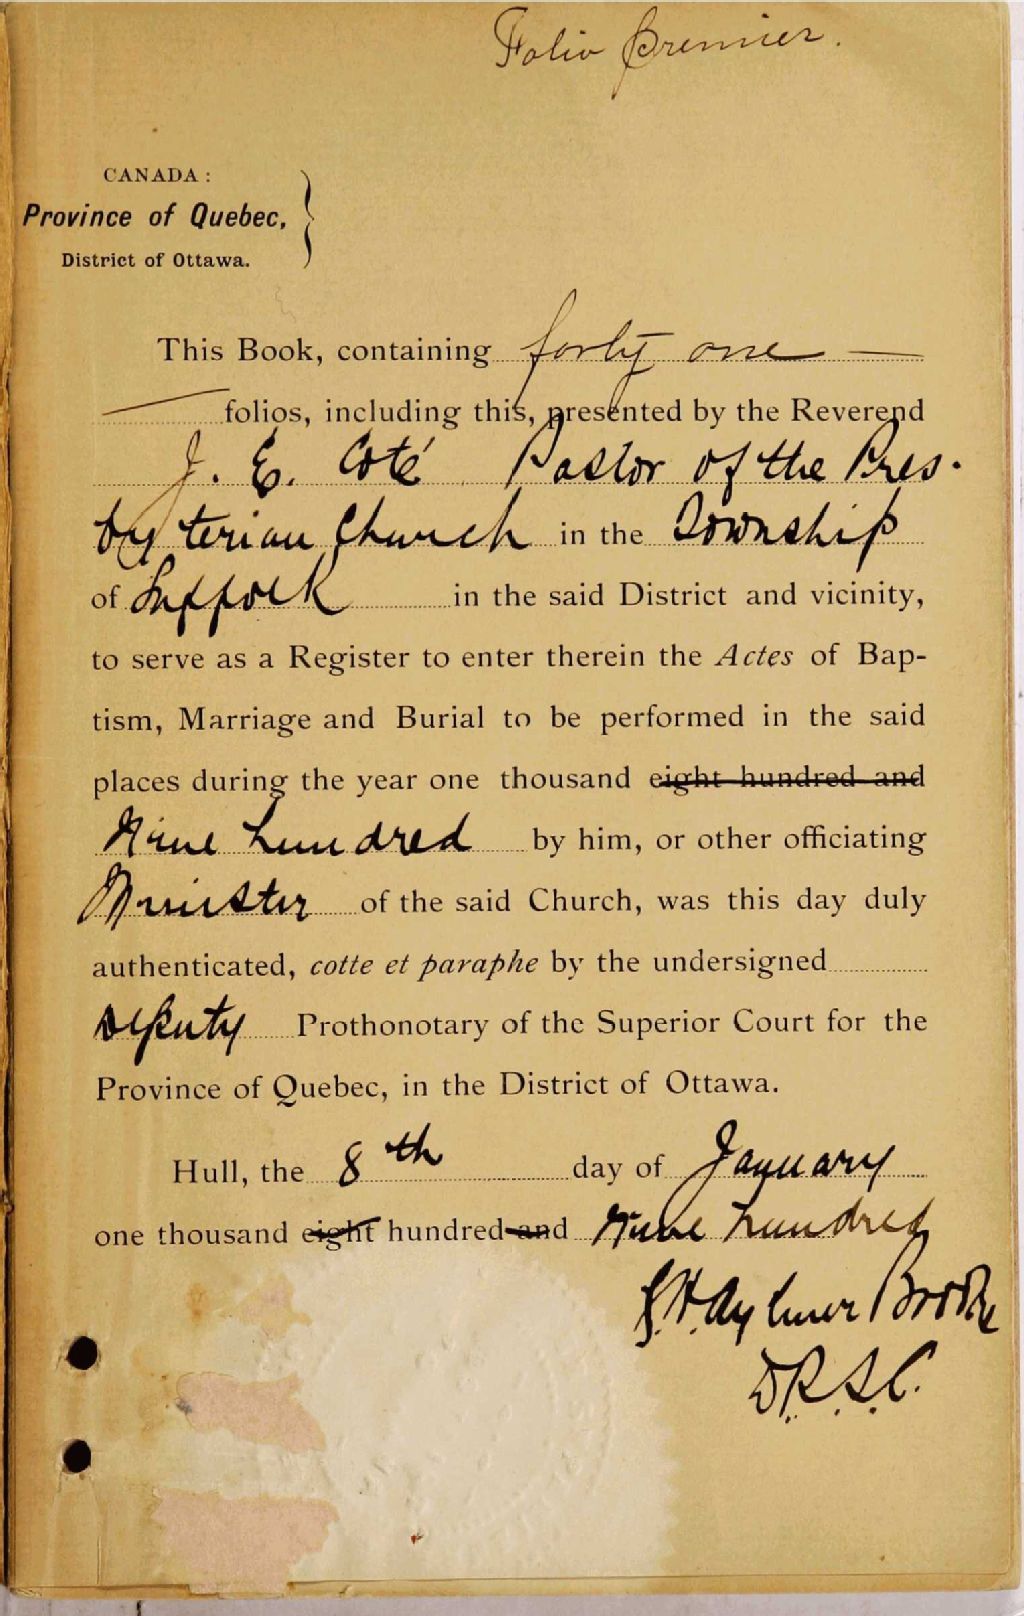 Folio Premier.
CANADA:
Province of Quebec,
District of Ottawa.
This Book, containing forty one —
— folios, including this, presented by the Reverend
J. E. Coté Pastor of the Pres-
byterian Church in the Township
of Suffolk in the said District and vicinity,
to serve as a Register to enter therein the Actes of Bap-
tism, Marriage and Burial to be performed in the said
places during the year one thousand eight hundred and
Nine hundred by him, or other officiating
Minister of the said Church, was this day duly
authenticated, cotte et paraphe by the undersigned
Deputy Prothonotary of the Superior Court for the
Province of Quebec, in the District of Ottawa.
Hull, the 8th day of January
one thousand eight hundred and Nine hundred
Aylmer Brooke
D.P.S.C.